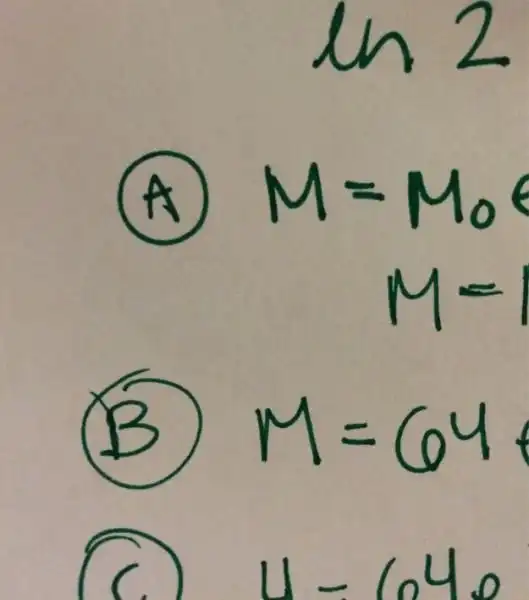 ln 2
A M = M₀ e
M =
B M = 64
C 4 = 64e